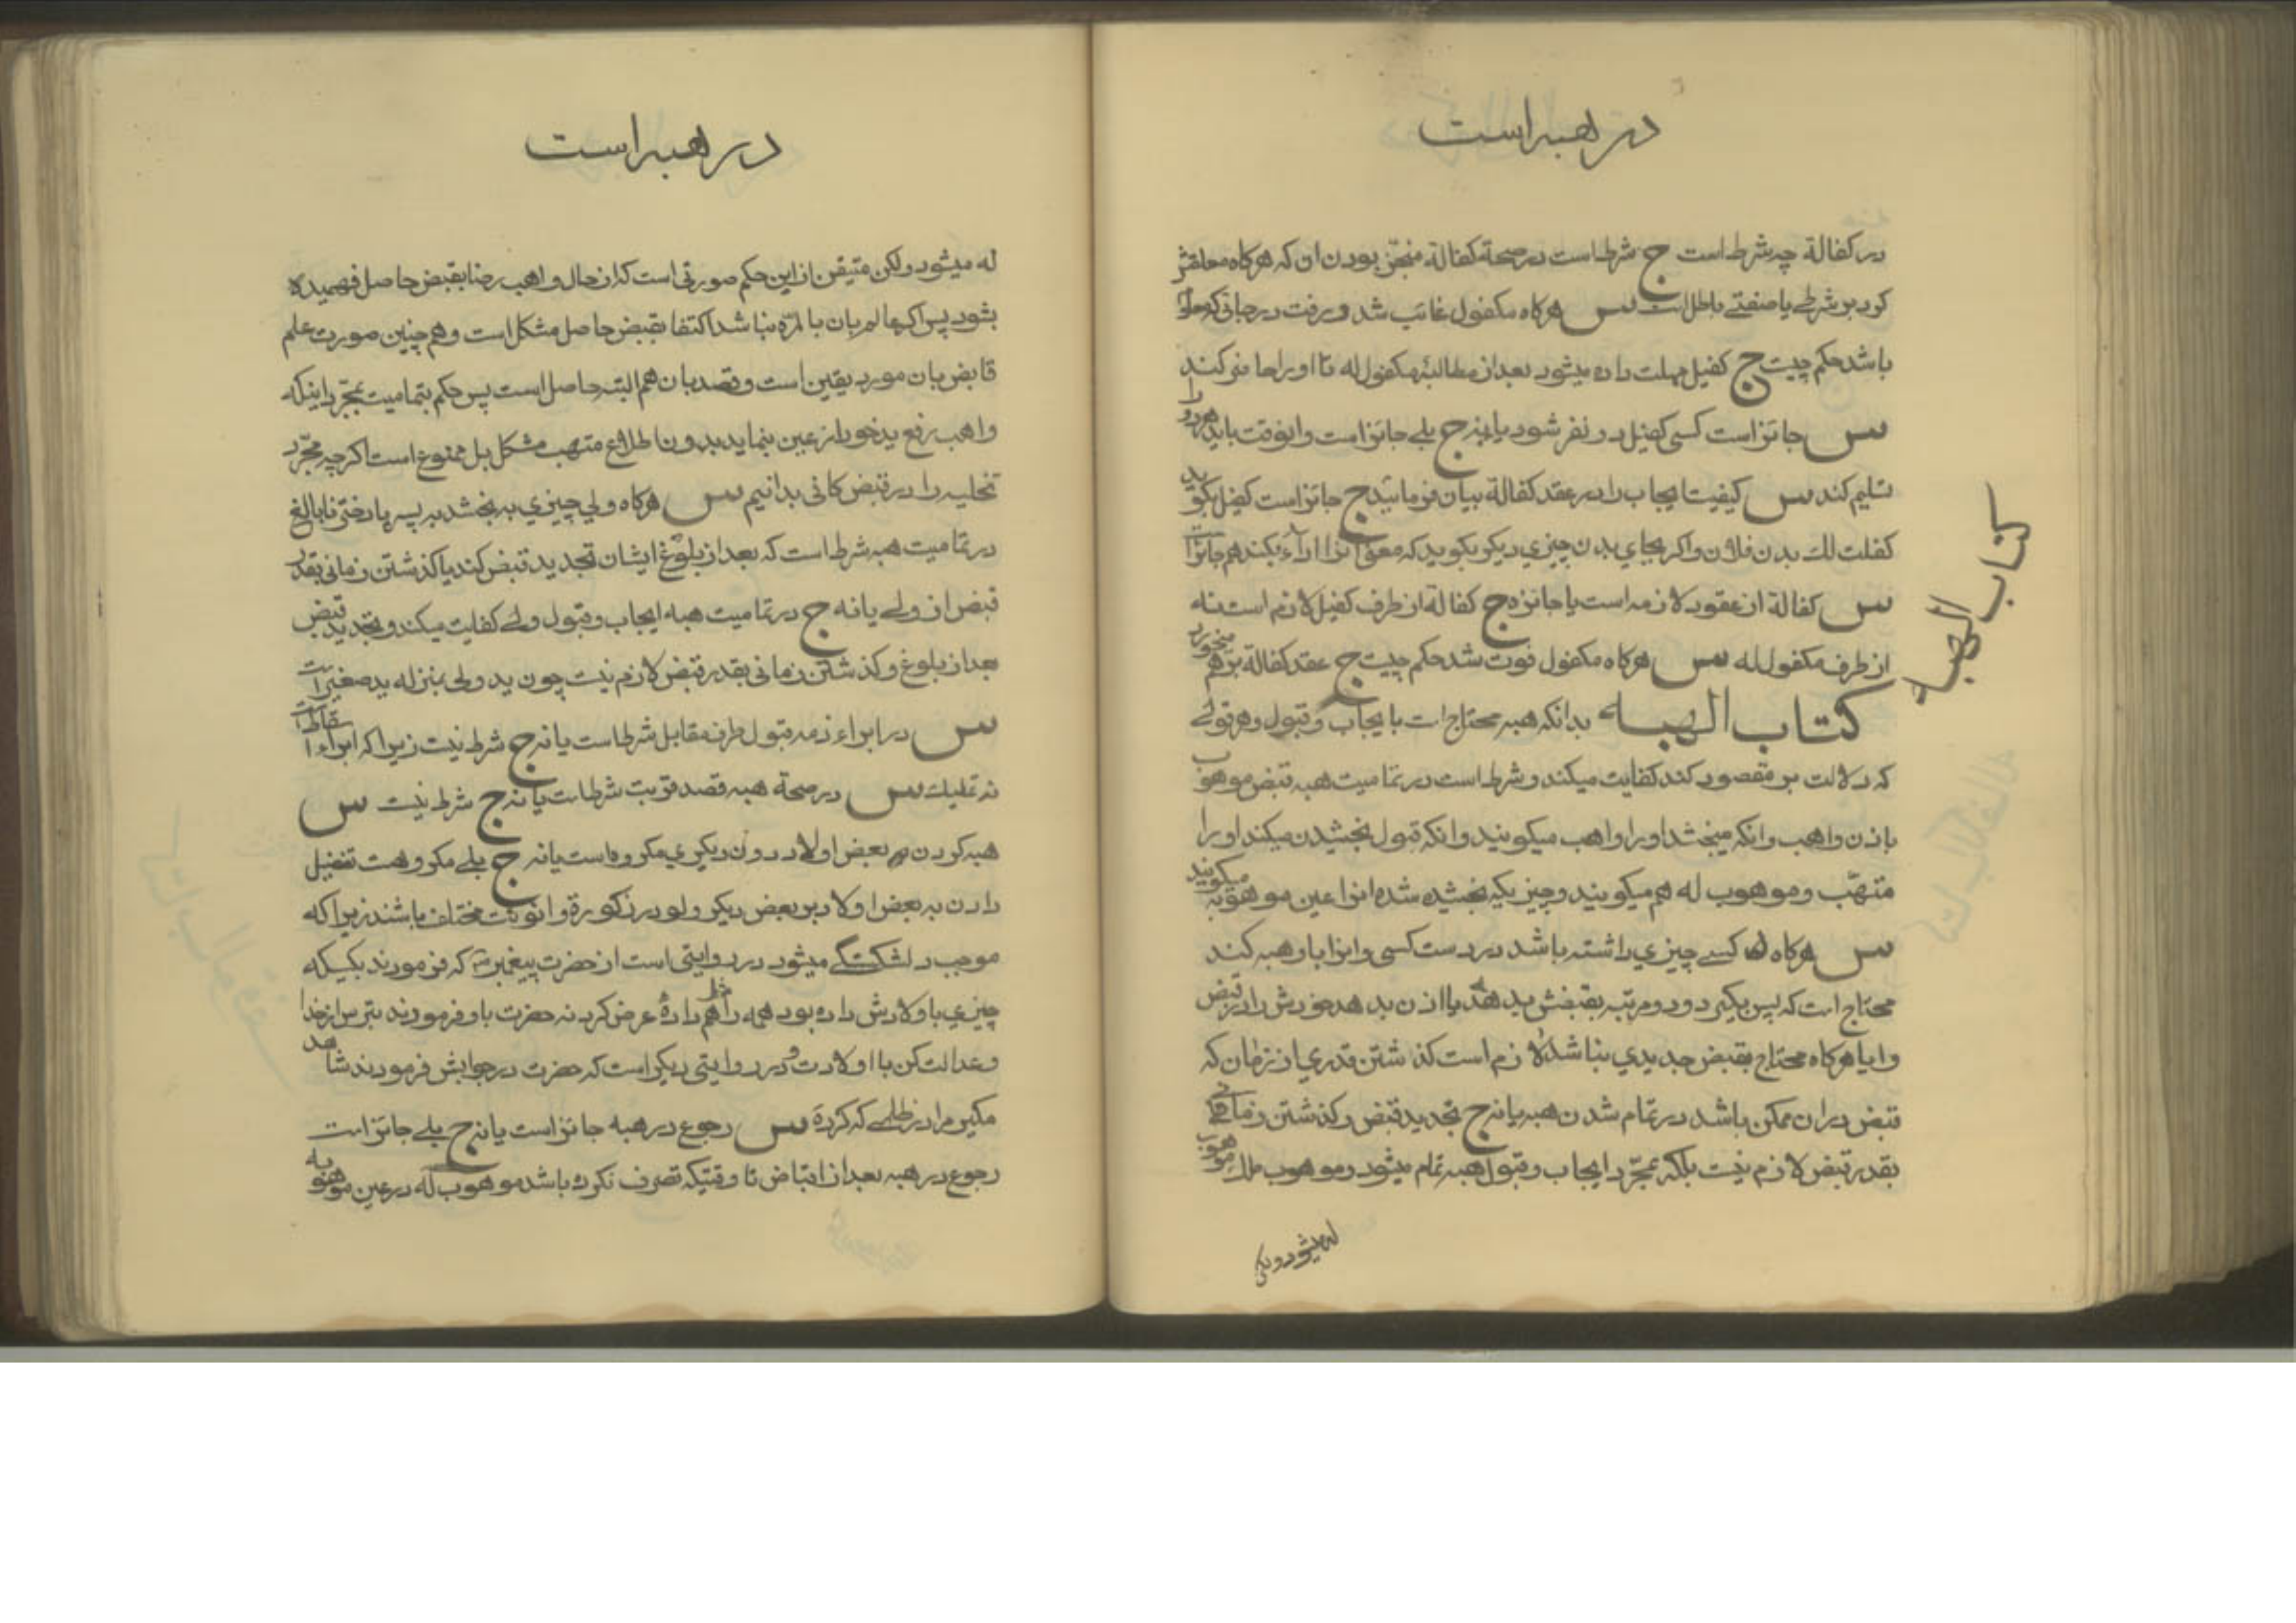 در هبه است
در کفالة چه شرط است ج شرط است در صحة کفالة منجز بودن ان که هرکاه معلقش
کرد بر شرطے یا صفتے باطل است س هرکاه مکفول غائب شد و رفت در جائی که معلوم
باشد حکم چیست ج کفیل مهلت داده میشود بعد از مطالبۀ مکفول له تا او را حاضر کند
س جائز است کسی کفیل دو نفر شود یا نه ج بلے جائز است وانوقت باید هردو را
تسلیم کند س کیفیت ایجاب را در عقد کفالة بیان فرمائید ج جائز است کفیل بکوید
کفلت لك بدن فلان واکر بجاي بدن چیزي دیکر بکوید که معنی انرا اداء بکند هم جائز است
س کفالة از عقود لازمه است یا جائزه ج کفالة از طرف کفیل لازم است نه
از طرف مکفول له س هرکاه مکفول فوت شد حکم چیست ج عقد کفالة برهم میخورد
کتاب الهبه
کتاب الهبه بدانکه هبه محتاج است بایجاب و قبول و هر قولے
که دلالت بر مقصود کند کفایت میکند و شرط است در تمامیت هبه قبض موهوب
باذن واهب وانکه میبخشد اورا واهب میکویند وانکه قبول بخشیدن میکند اورا
متهّب و موهوب له هم میکویند و چیزیکه بخشیده شده انرا عین موهوبه میکویند
س هرکاه کسے چیزي داشته باشد در دست کسی وانرا باو هبه کند
محتاج است که پس بکیرد و دو مرتبه بقبضش بدهد یا اذن بدهد خودش را در قبض
وایا هرکاه محتاج بقبض جدیدي نباشد لازم است کذشتن قدري از زمان که
قبض دران ممکن باشد در تمام شدن هبه یا نه ج تجدید قبض و کذشتن زمانی
بقدر قبض لازم نیست بلکه بمجرّد ایجاب و قبول هبه تمام میشود و موهوب ملك موهوب
له میشود ولکن
در هبه است
له میشود ولکن متیقن از این حکم صورتی است که از حال واهب رضا بقبض حاصل فهمیده
بشود پس اکر عالم بان بالمرّه نباشد اکتفا بقبض حاصل مشکل است و هم چنین صورت علم
قابض بان مورد یقین است و قصد بان هم البته حاصل است پس حکم بتمامیت بمجرّد اینکه
واهب رفع ید خود از عین بنماید بدون اطلاع متهب مشکل بل ممنوع است اکرچه مجرّد
تخلیه را در قبض کافی بدانیم س هرکاه ولي چیزي به بخشد به پسر یا دختر نابالغ
در تمامیت هبه شرط است که بعد از بلوغ ایشان تجدید قبض کند یا کذشتن زمانی بقدر
قبض از ولے یا نه ج در تمامیت هبه ایجاب و قبول ولے کفایت میکند و تجدید قبض
بعد از بلوغ و کذشتن زمانی بقدر قبض لازم نیست چون ید ولی بمنزله ید صغیر است
س در ابراء ذمه قبول طرف مقابل شرط است یا نه ج شرط نیست زیرا که ابراء اسقاط است
نه تملیك س در صحة هبه قصد قربت شرط است یا نه ج شرط نیست س
هبه کردن به بعض اولاد دون دیکري مکروه است یا نه ج بلے مکروهست تفضیل
دادن به بعض اولاد بر بعض دیکر ولو در ذکورة وانوثت مختلف باشند زیرا که
موجب دلشکستکے میشود در روایتی است از حضرت پیغمبر ص که فرمودند بکسیکه
چیزي باولادش داده بود همه را هم دادۀ عرض کرد نه حضرت باو فرمودند بترس از خدا
و عدالت کن با اولادت و در روایتی دیکر است که حضرت در جوابش فرمودند شاهد
مکیر مرا در ظلمے که کردۀ س رجوع در هبه جائز است یا نه ج بلے جائز است
رجوع در هبه بعد از اقباض تا وقتیکه تصرف نکرده باشد موهوب له در عین موهوبه